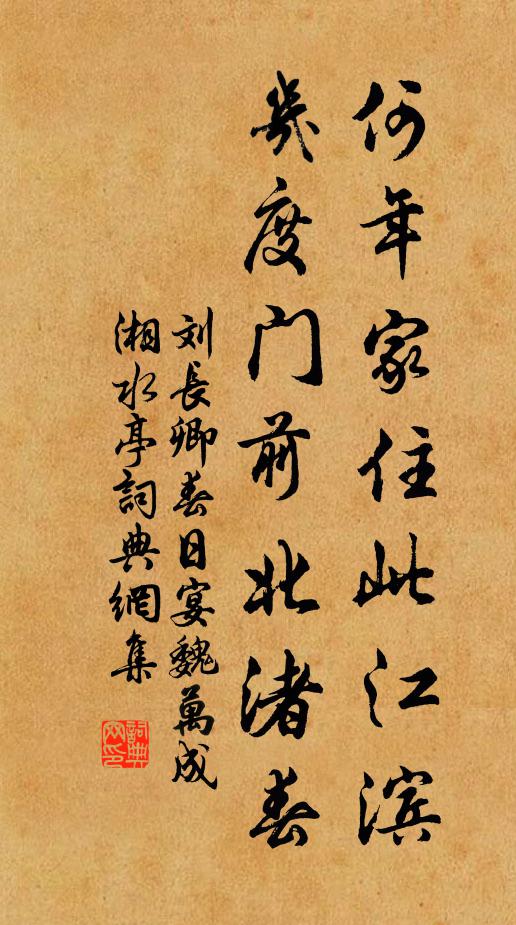 何年家住此江滨
几度门前北渚春
刘長卿春日宴魏萬成
湘水亭詞典網集
詞典网印